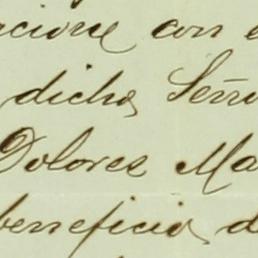 acione con e
dicha Señ
Dolores Ma
beneficio d